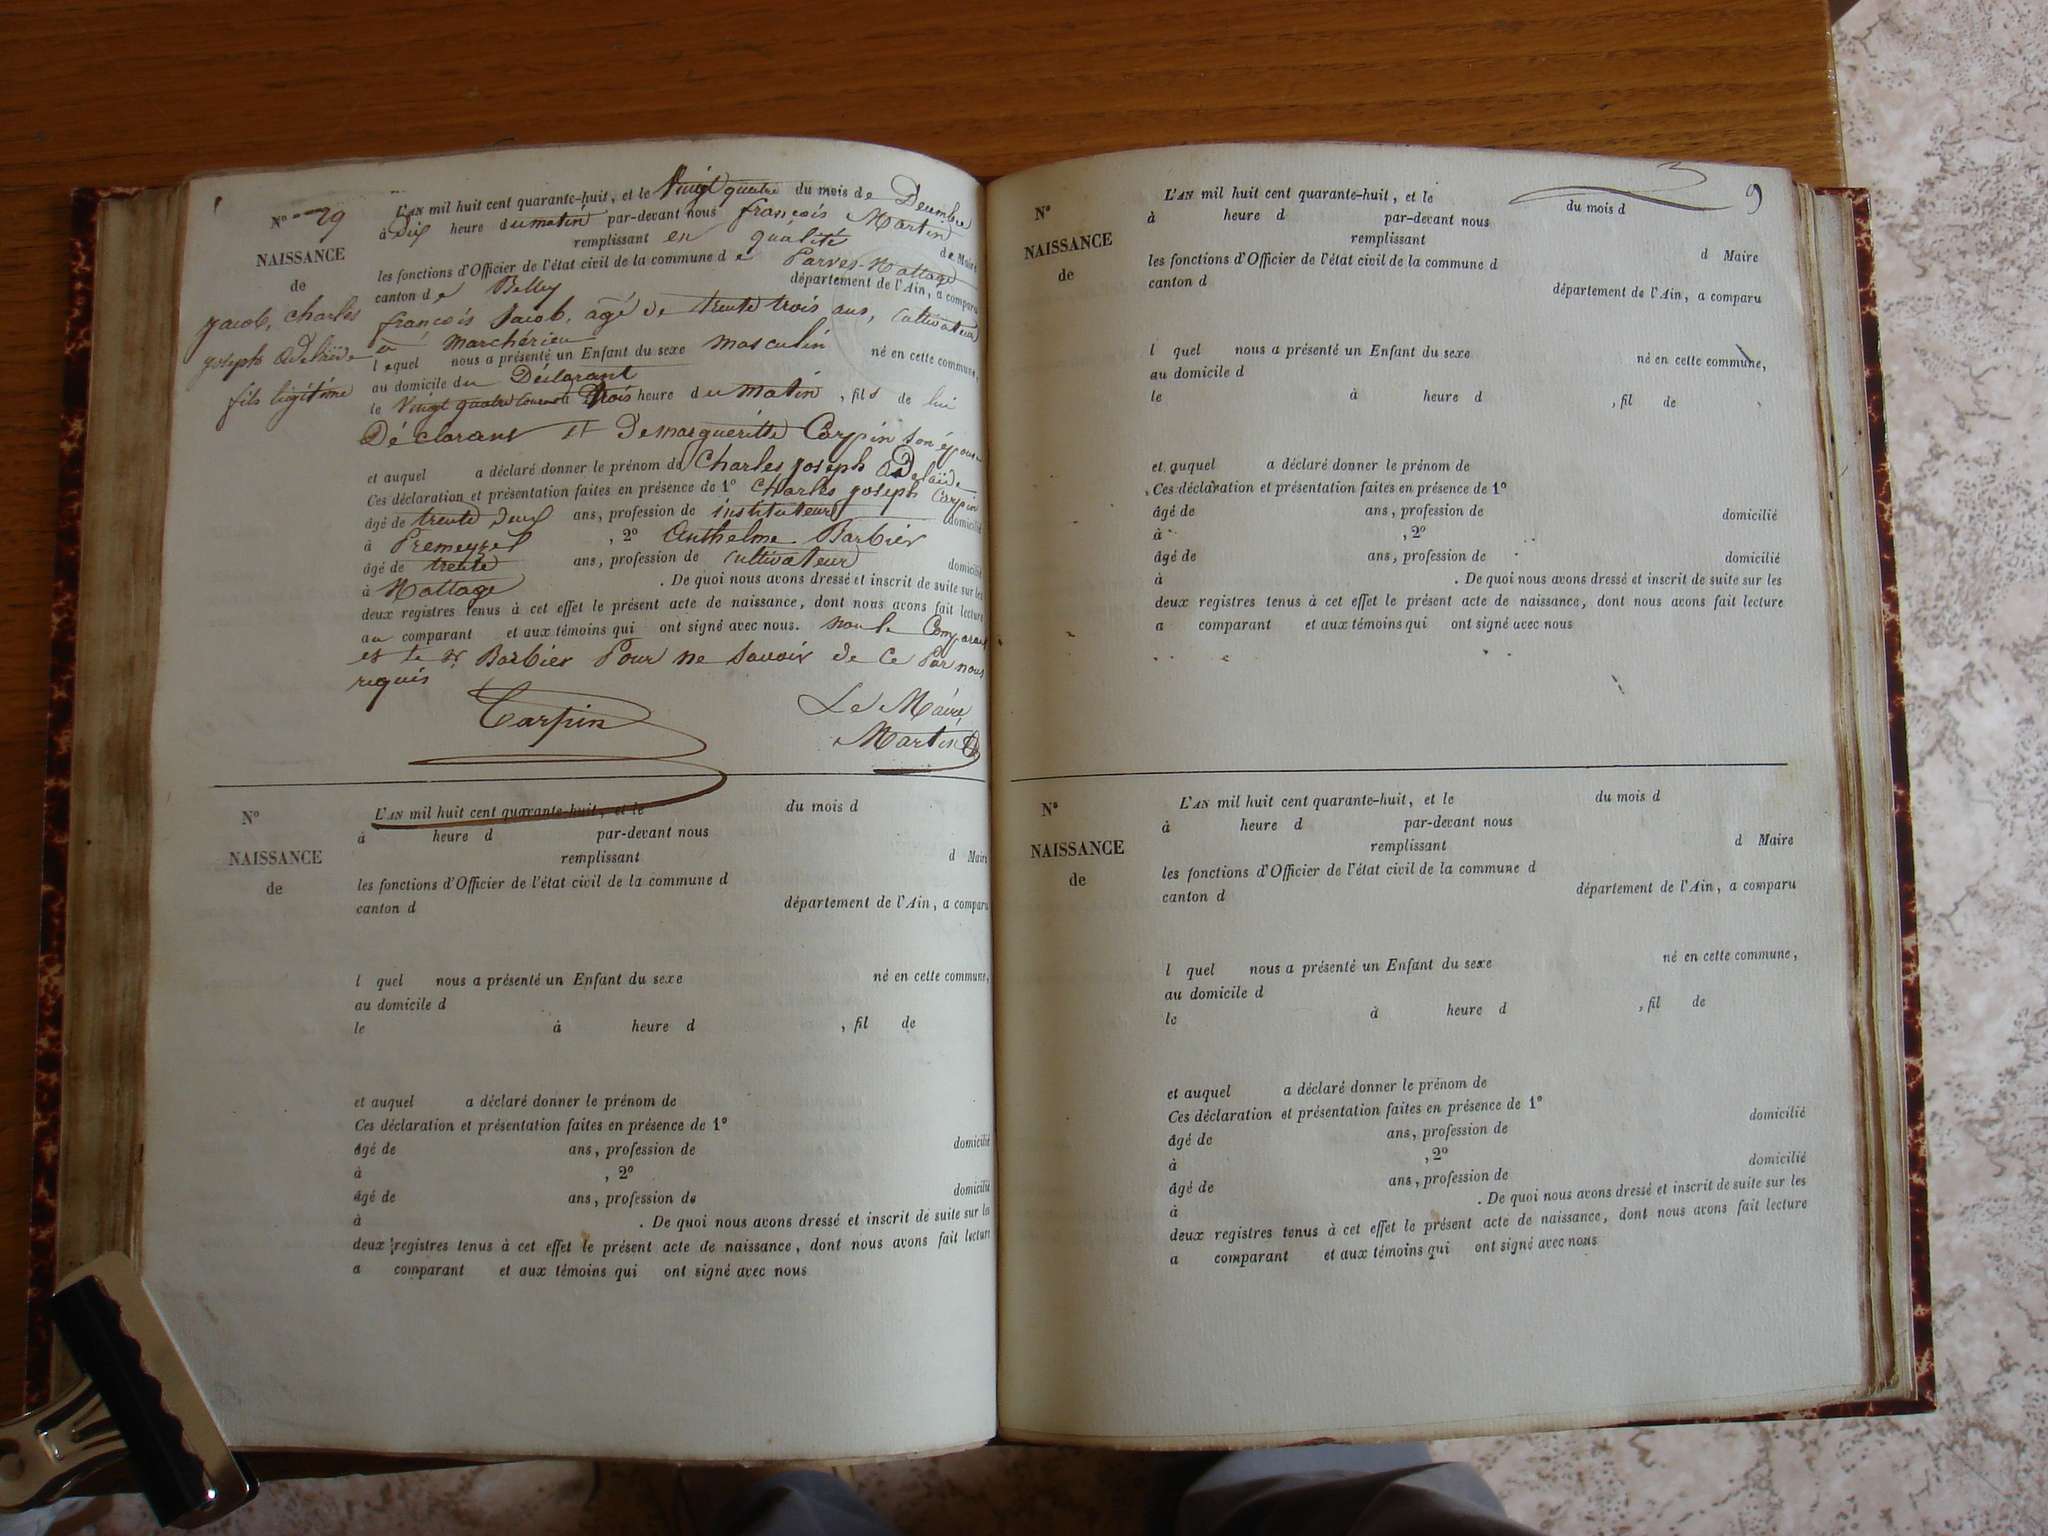 N° 29
NAISSANCE
de
Jacob, Charles
Joseph Adelaïde
fils légitime
L'AN mil huit cent quarante-huit, et le Vingt quatre du mois de Decembre
à Dix heure du matin par-devant nous françois Martin
remplissant en qualité de Maire
les fonctions d'Officier de l'état civil de la commune de Parves-Nattage
canton de Belley département de l'Ain, a comparu
françois Jacob, agé de trente trois ans, Cultivateur
à Marchérieu
lequel nous a présenté un Enfant du sexe masculin né en cette commune,
au domicile du Déclarant
le Vingt quatre courant à trois heure du matin, fils de lui
Déclarant et De margueritte Carpin son épouse
et auquel a déclaré donner le prénom de Charles joseph aDelaïde
Ces déclaration et présentation faites en présence de 1° Charles joseph Carpin
âgé de trente deux ans, profession de instituteur domicilié
à Premeyzel, 2° Anthelme Barbier
âgé de trente ans, profession de Cultivateur domicilié
à Nattage. De quoi nous avons dressé et inscrit de suite sur les
deux registres tenus à cet effet le présent acte de naissance, dont nous avons fait lecture
au comparant et aux témoins qui ont signé avec nous. non le Comparant
et le Sr Barbier Pour ne Savoir de Ce Par nous
requis
Carpin
Le Maire
Martin
N°
NAISSANCE
de
L'AN mil huit cent quarante-huit, et le du mois d
à heure d par-devant nous
remplissant d Maire
les fonctions d'Officier de l'état civil de la commune d
canton d département de l'Ain, a comparu
l quel nous a présenté un Enfant du sexe né en cette commune,
au domicile d
le à heure d , fil de
et auquel a déclaré donner le prénom de
Ces déclaration et présentation faites en présence de 1°
âgé de ans, profession de domicilié
à , 2°
âgé de ans, profession de domicilié
à . De quoi nous avons dressé et inscrit de suite sur les
deux registres tenus à cet effet le présent acte de naissance, dont nous avons fait lecture
a comparant et aux témoins qui ont signé avec nous
9
N°
NAISSANCE
de
L'AN mil huit cent quarante-huit, et le du mois d
à heure d par-devant nous
remplissant d Maire
les fonctions d'Officier de l'état civil de la commune d
canton d département de l'Ain, a comparu
l quel nous a présenté un Enfant du sexe né en cette commune,
au domicile d
le à heure d , fil de
et auquel a déclaré donner le prénom de
Ces déclaration et présentation faites en présence de 1°
âgé de ans, profession de domicilié
à , 2°
âgé de ans, profession de domicilié
à . De quoi nous avons dressé et inscrit de suite sur les
deux registres tenus à cet effet le présent acte de naissance, dont nous avons fait lecture
a comparant et aux témoins qui ont signé avec nous
N°
NAISSANCE
de
L'AN mil huit cent quarante-huit, et le du mois d
à heure d par-devant nous
remplissant d Maire
les fonctions d'Officier de l'état civil de la commune d
canton d département de l'Ain, a comparu
l quel nous a présenté un Enfant du sexe né en cette commune,
au domicile d
le à heure d , fil de
et auquel a déclaré donner le prénom de
Ces déclaration et présentation faites en présence de 1°
âgé de ans, profession de domicilié
à , 2°
âgé de ans, profession de domicilié
à . De quoi nous avons dressé et inscrit de suite sur les
deux registres tenus à cet effet le présent acte de naissance, dont nous avons fait lecture
a comparant et aux témoins qui ont signé avec nous